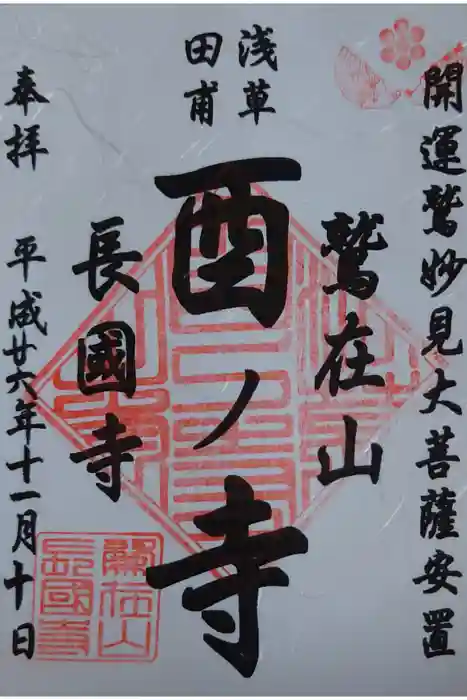 開運鷲妙見大菩薩安置
浅草
田甫
鷲在山
酉ノ寺
長國寺
奉拝
平成廿六年十一月十日
鷲在山
長國寺